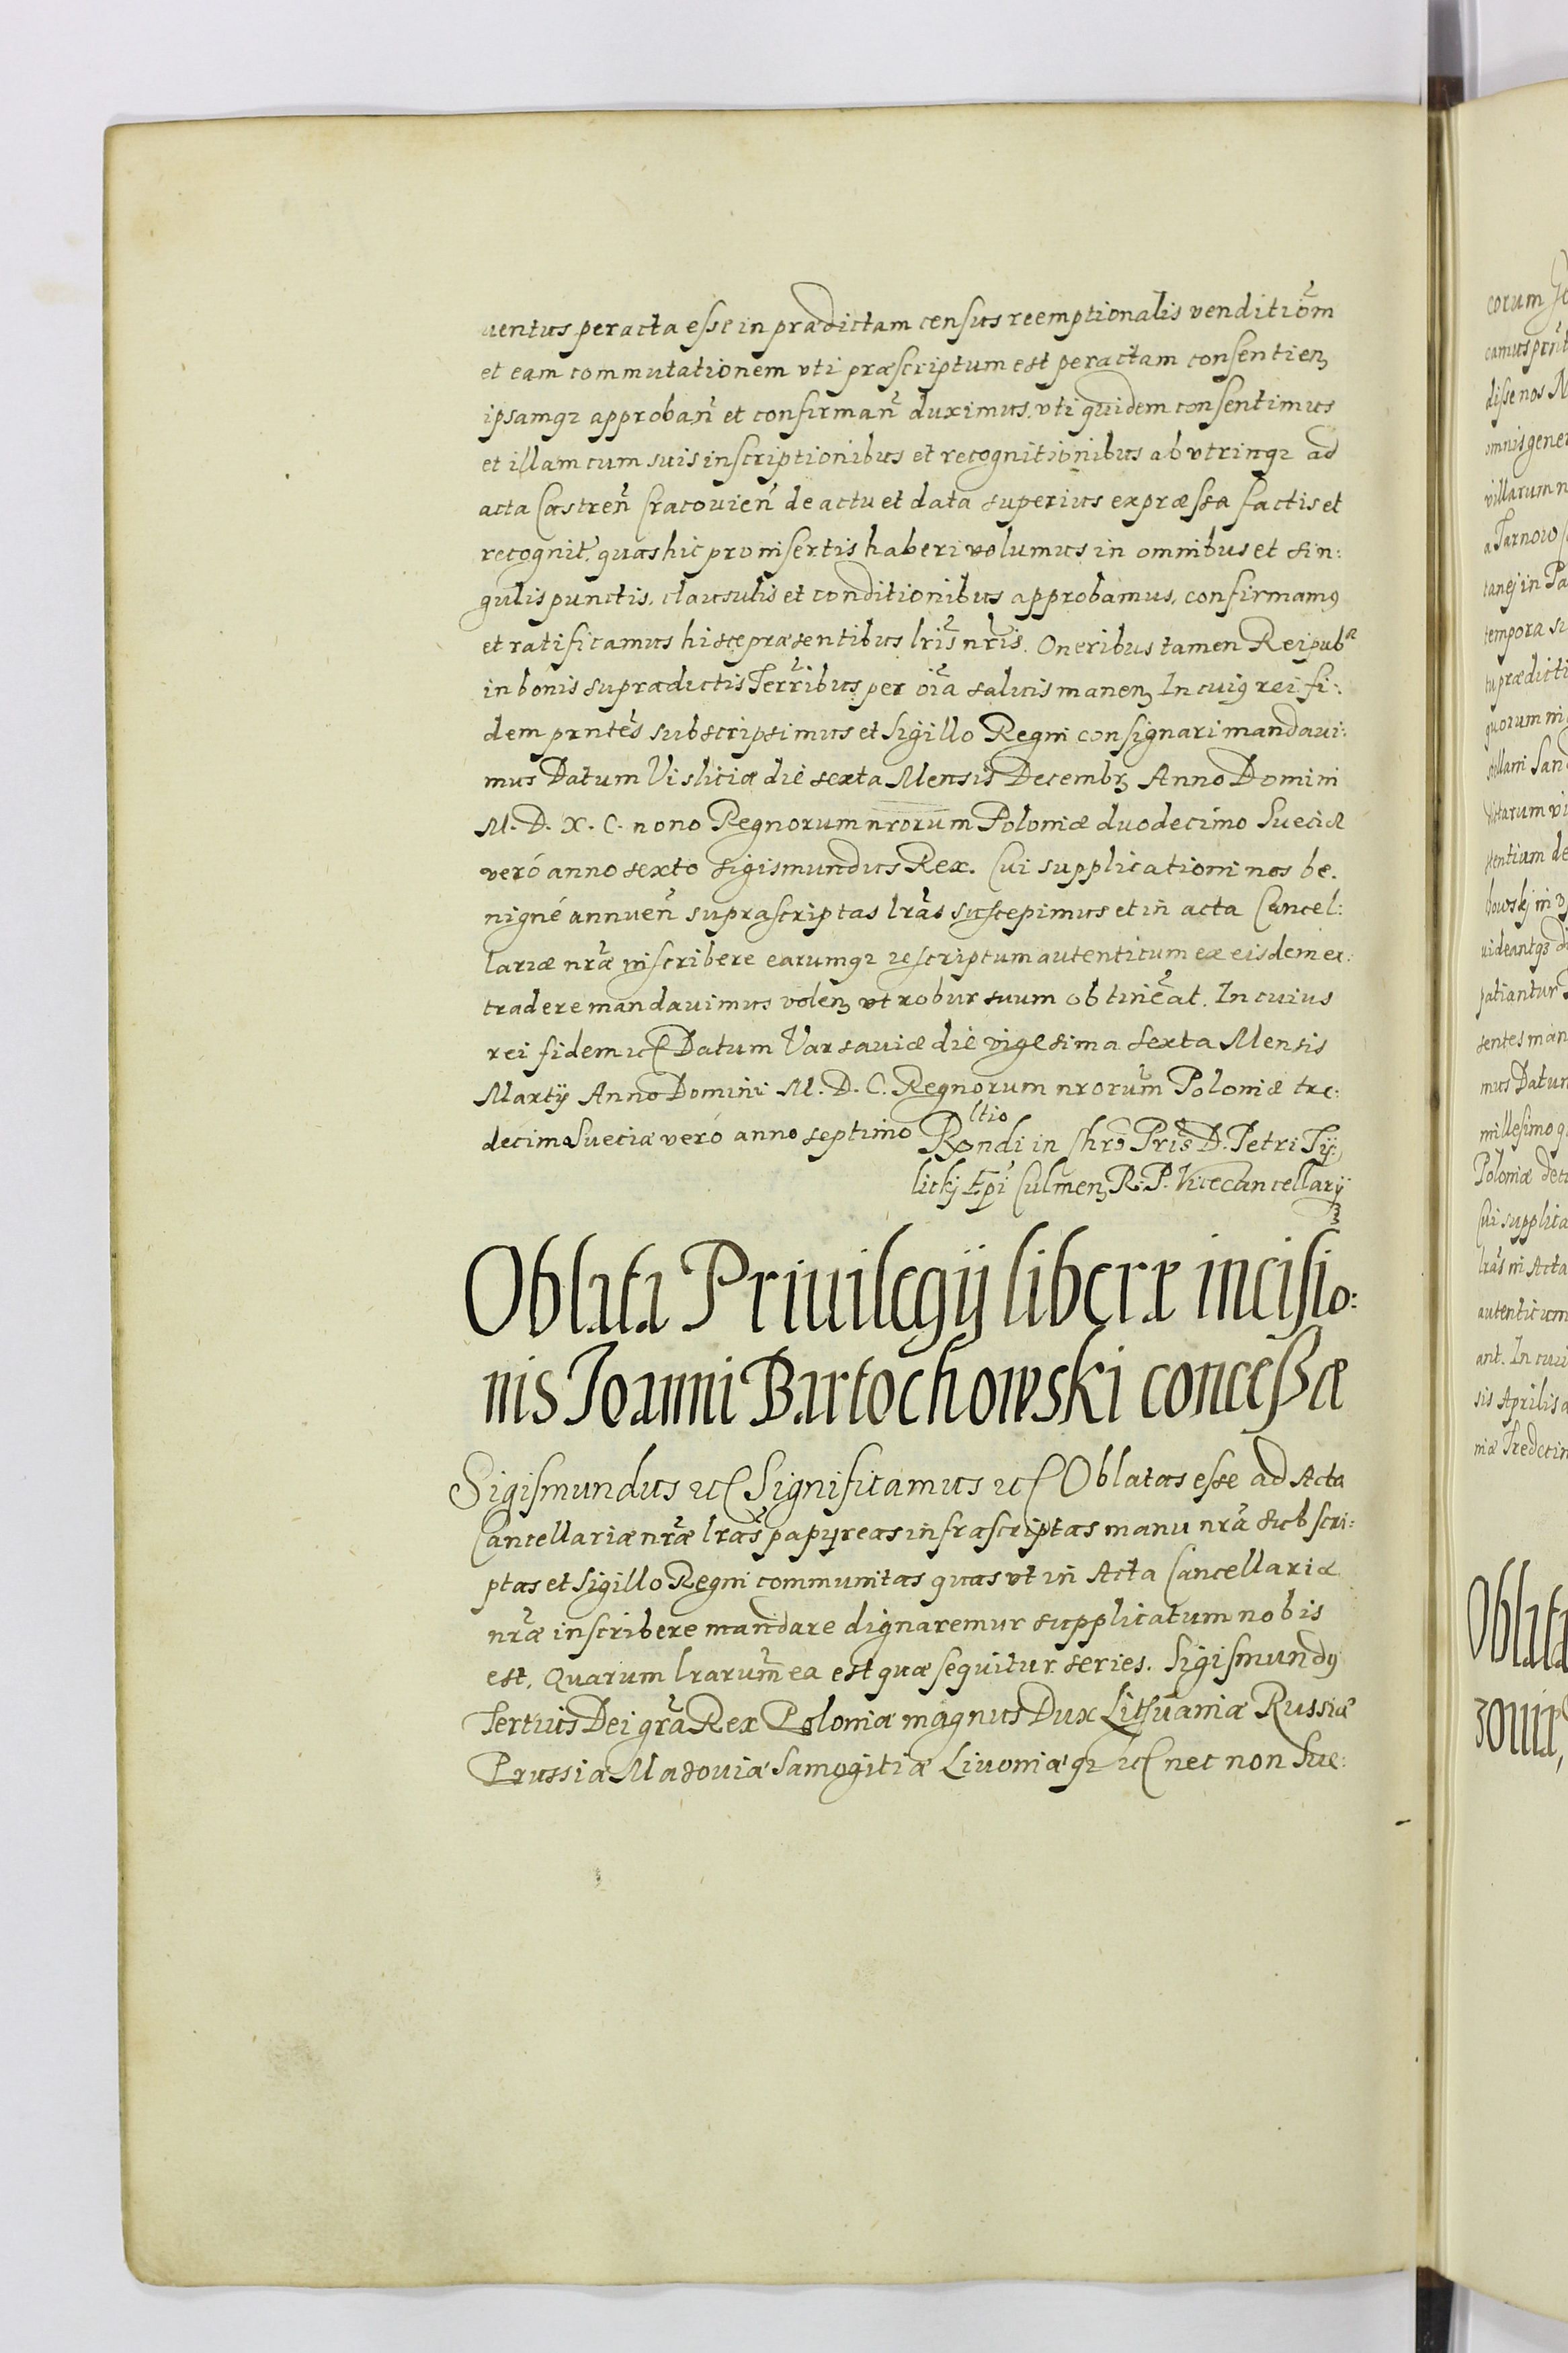 uentus peracta esse in prædictam census reemptionalis venditiõm
et eam commutationem vti præscriptum est peractam consentien̨
ipsamq₂ approbañ et confirmañ duximus. vti quidem consentimus
et illam cum suis inscriptionibus et recognitionibus ab vtrinq₂ ad
acta Castreñ Cracovieñ de actu et data superius expræssa factis et
recognit̃. quas hic pro insertis haberi volumus in omnibus et sin:
gulis punctis, clausulis et conditionibus approbamus, confirmamꝰ
et ratificamus hisce præsentibus lr̃is nr̃is. Oneribus tamen Reipubᵆ
in bonis supradictis Terr̃ibus per oĩa saluis manen̨ In cuiꝰ rei fi:
dem prñtes subscripsimus et Sigillo Regni consignari mandaui:
mus Datum Visliciæ die sexta Mensis Decembr̨ Anno Domini
M. D. X. C. nono Regnorum nrorum Poloniæ duodecimo Sueciæ
veró anno sexto Sigismundus Rex. Cui supplicationi nos be.
nigné annueñ suprascriptas lr̃as suscepimus et in acta Cancel:
lariæ nr̃æ inscribere earumq₂ rescriptum autenticum ex eisdem ex:
tradere mandauimus volen̨ vt robur suum obtineãt. In cuius
rei fidem ꝛc Datum Varsauiæ die vigesima sexta Mensis
Martij Anno Domini M. D. C. Regnorum nrorum̃ Poloniæ tre:
decimo Sueciæ veró anno septimo Rltio
Rondi in Chrõ Pris̃ D. Petri Tÿ:
lickj Epĩ Culmen̨ R. P. Vicecancellarij
Oblata Priuilegij liberæ incisio:
nis Joanni Bartochowski conceßæ
Sigismundus ꝛc Significamus ꝛc Oblatas esse ad Acta
Cancellariæ nr̃æ lr̃as papyreas infrascriptas manu nr̃a subscri:
ptas et Sigillo Regni communitas quas vt in Acta Cancellariæ
nr̃æ inscribere mandare dignaremur supplicatum nobis
est. Quarum lrarum̃ ea est quæ sequitur series. Sigismundꝰ
Tertius Dei gr̃a Rex Poloniæ magnus Dux Lithuaniæ Russiæ
Prussiæ Masouiæ Samogitiæ Liuoniæq₂ ꝛc nec non Sue: